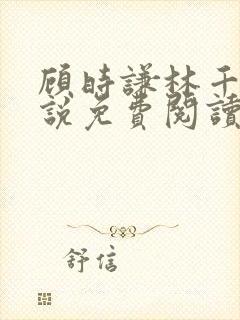 顾时謙林千
說免費閱讀
舒信